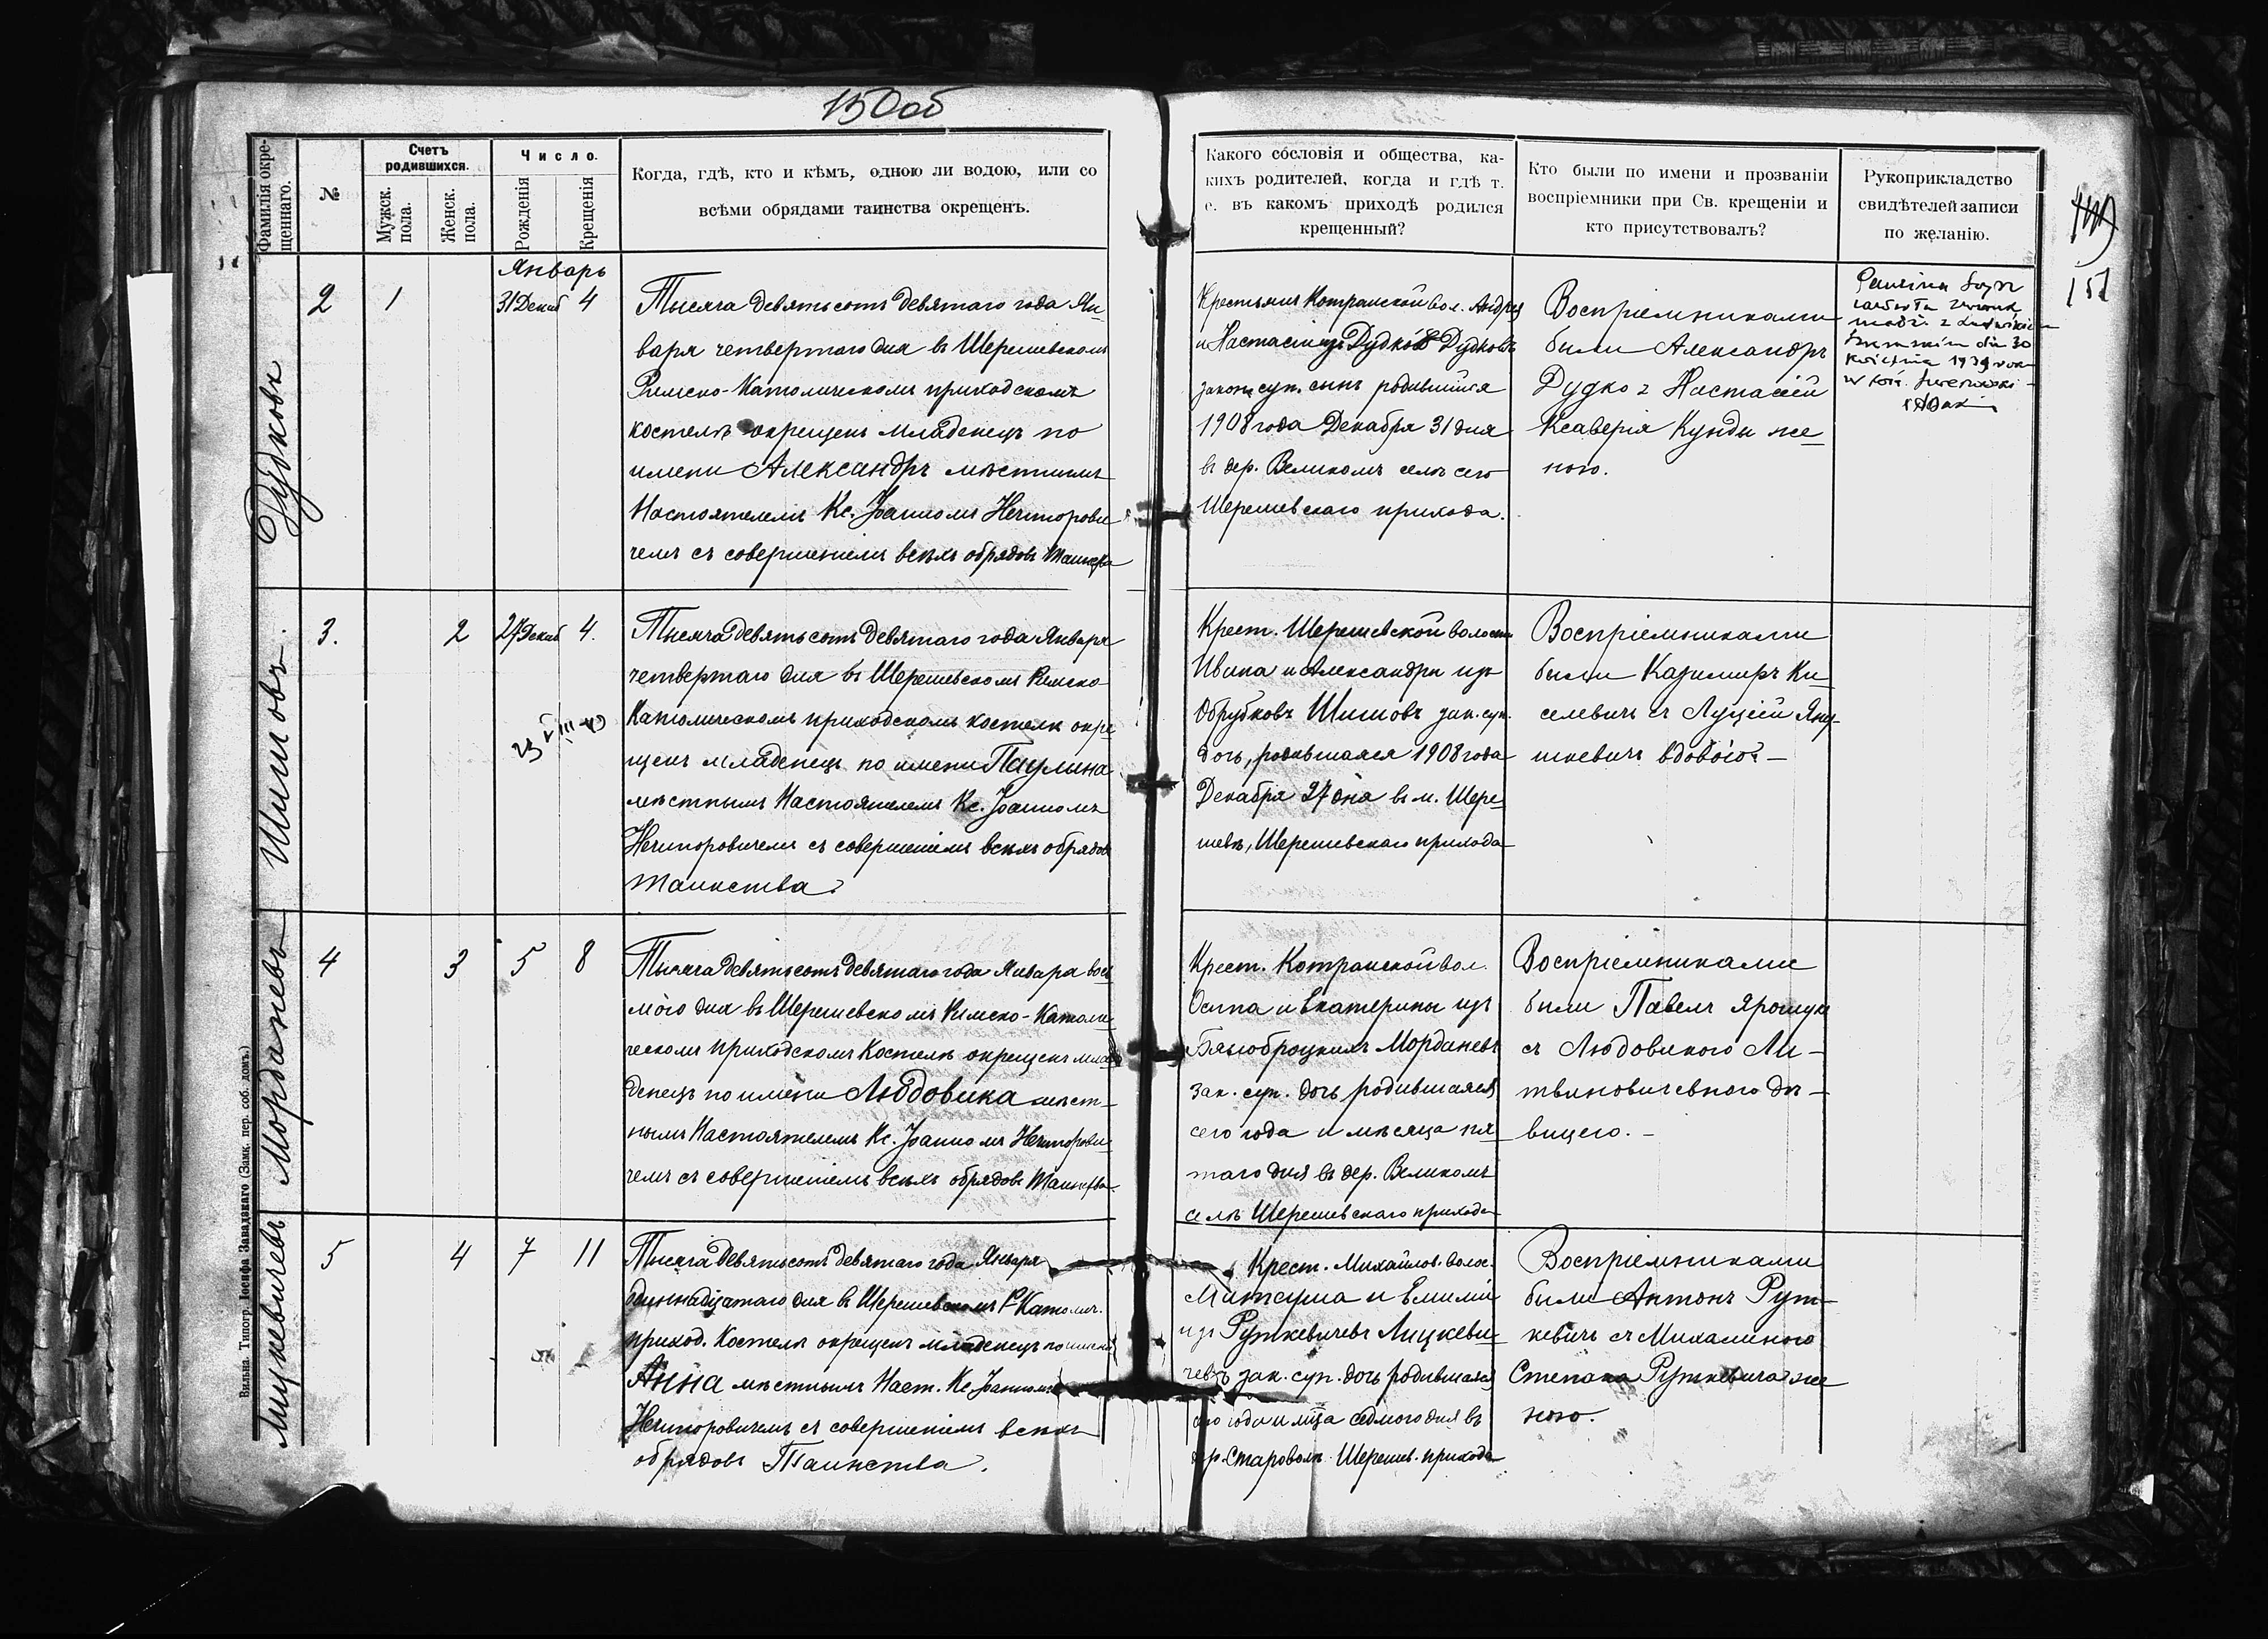 150об
Фамилія окрещеннаго.
№
Счетъ родившихся.
Мужск. пола.
Женск. пола.
Число.
Рожденія
Крещенія
Когда, гдѣ, кто и кѣмъ, одною ли водою, или со
всѣми обрядами таинства окрещенъ.
Январь
Дудковъ
2
1
31 Декаб
4
Тысяча девятьсотъ девятаго года Ян-
варя четвертаго дня въ Шерешевскомъ
Римско-Католическомъ приходскомъ
костелѣ окрещенъ младенецъ по
имени Александръ мѣстнымъ
Настоятелемъ Кс. Іоанномъ Нечипорови-
чемъ съ совершеніемъ всѣхъ обрядовъ Таинства
Шишовъ.
3.
2
27 Декаб
4.
Тысяча девятьсотъ девятаго года Января
четвертаго дня въ Шерешевскомъ Римско
Католическомъ приходскомъ костелѣ окре-
щенъ младенецъ по имени Паулина
мѣстнымъ Настоятелемъ Кс. Іоанномъ
Нечипоровичемъ съ совершеніемъ всѣхъ обрядовъ
таинства.
Морданевъ
4
3
5
8
Тысяча девятьсотъ девятаго года Января вось-
мого дня въ Шерешевскомъ Римско-Католи-
ческомъ приходскомъ Костелѣ окрещенъ мла-
денецъ по имени Людовика мѣст-
нымъ Настоятелемъ Кс. Іоанномъ Нечипорови-
чемъ съ совершеніемъ всѣхъ обрядовъ Таинства.
Мицкевичевъ
5
4
7
11
Тысяча девятьсотъ девятаго года Января
одиннадцатаго дня въ Шерешевскомъ Р Католич.
приход. Костелѣ окрещенъ младенецъ по имени
Анна мѣстнымъ Наст. Кс. Іоанномъ
Нечипоровичемъ съ совершеніемъ всѣхъ
обрядовъ Таинства.
Вильна. Типогр. Іосифа Завадзкаго (Замк. пер. соб. домъ.)
Какого сословія и общества, ка-
кихъ родителей, когда и гдѣ т.
е. въ какомъ приходѣ родился
крещенный?
Кто были по имени и прозванію
воспріемники при Св. крещеніи и
кто присутствовалъ?
Рукоприкладство
свидѣтелей записи
по желанію.
151
Крестьянъ Котранской вол. Андрея
и Настасіи изъ Дудковъ Дудковъ
закон. суп. сынъ родившійся
1908 года Декабря 31 дня
въ дер. Великомъ селѣ сего
Шерешевскаго прихода.
Воспріемниками
были Александръ
Дудко с Настасіей
Ксаверія Кунды же-
ною.
Paulina
1939
Крест. Шерешевской волости
Ивана и Александры изъ
Обрубковъ Шишовъ зак. суп.
дочь, родившаяся 1908 года
Декабря 27 дня въ м. Шере-
шевѣ, Шерешевскаго прихода
Воспріемниками
были Казимиръ Ки-
селевичъ съ Луціей Яну-
шкевичъ вдовою. —
Крест. Котранской вол.
Осипа и Екатерины изъ
Бялоброцкихъ Морданевъ
зак. суп. дочь родившаяся
сего года и мѣсяца пя-
таго дня въ дер. Великомъ
селѣ Шерешевскаго прихода
Воспріемниками
были Павелъ Ярошукъ
съ Людовикою Ли-
твиновичевною дѣ-
вицею. —
Крест. Михайлов. волос.
и Емиліи
изъ Руткевичевъ Мицкеви-
чевъ зак. суп. дочь родившаяся
сего года и мца седмого дня въ
дер. Староволѣ Шерешев. прихода
Воспріемниками
были Антонъ Рут-
кевичъ съ Михалиною
Степана Руткевича же-
ною.